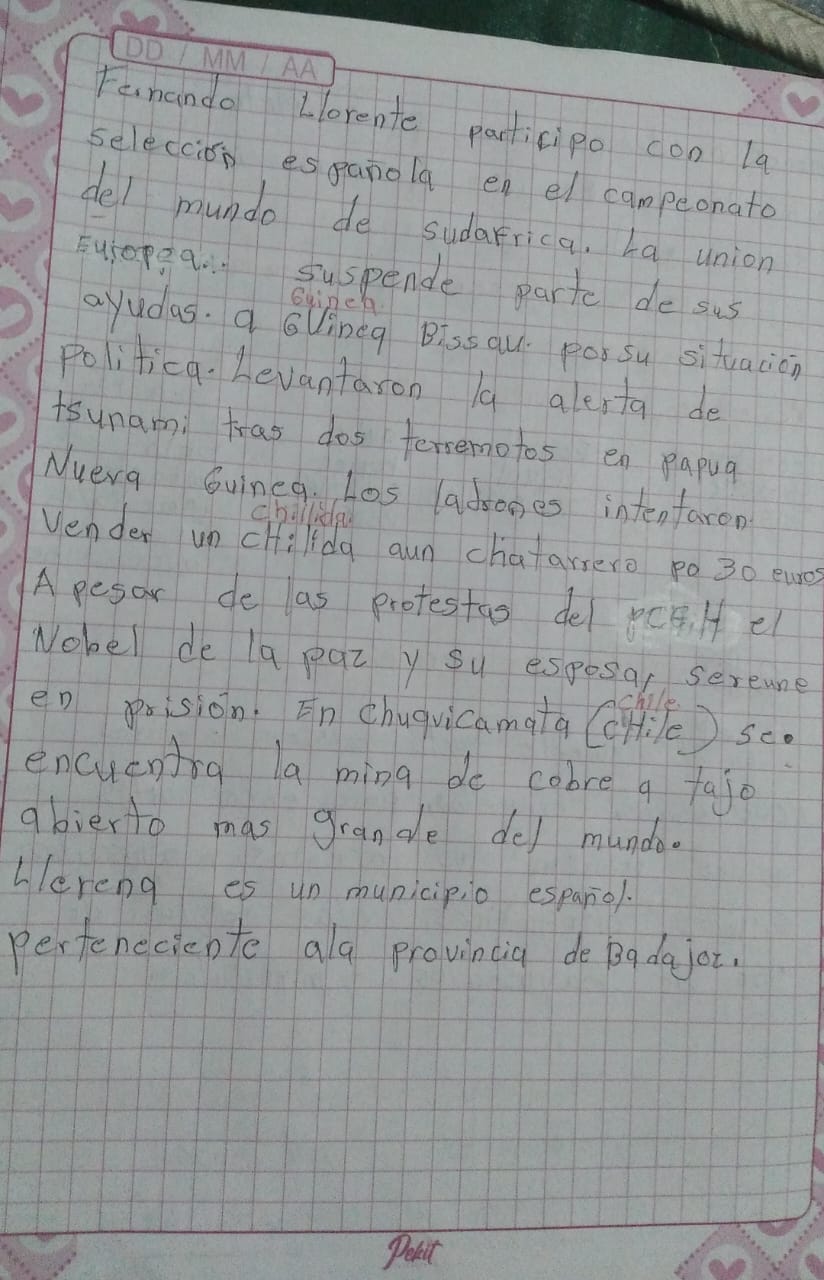 DD / MM / AA
Fernando Llorente participo con la
selección española en el campeonato
del mundo de sudafrica. La union
Europea... suspende parte de sus
Guinea
ayudas. a GUinea Bissau. porsu situación
Politica. Levantaron la alerta de
tsunami tras dos terremotos en papua
Nueva Guinea. Los ladrones intentaron
chillida
Vender un cHilida aun chatarrero po 30 euros
A pesar de las protestas del el
Nobel de la paz y su esposa, sereune
chile
en prisión. En chuquicamata (cHile) se
encuentra la mina de cobre a tajo
abierto mas grande del mundo.
Llerena es un municipio español.
perteneciente ala provincia de Badajoz.
Pekit